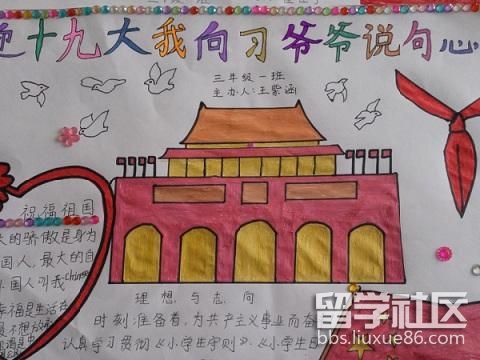 迎十九大我向习爷爷说句心
三年级一班
主办人:王紫涵
祝福祖国
大的骄傲是身为
国人,最大的自
国人叫我China
幸福是生活在
理想与志向
时刻准备着,为共产主义事业而奋
认真学习贯彻《小学生守则》、《小学生日
留学社区
bbs.liuxue86.com